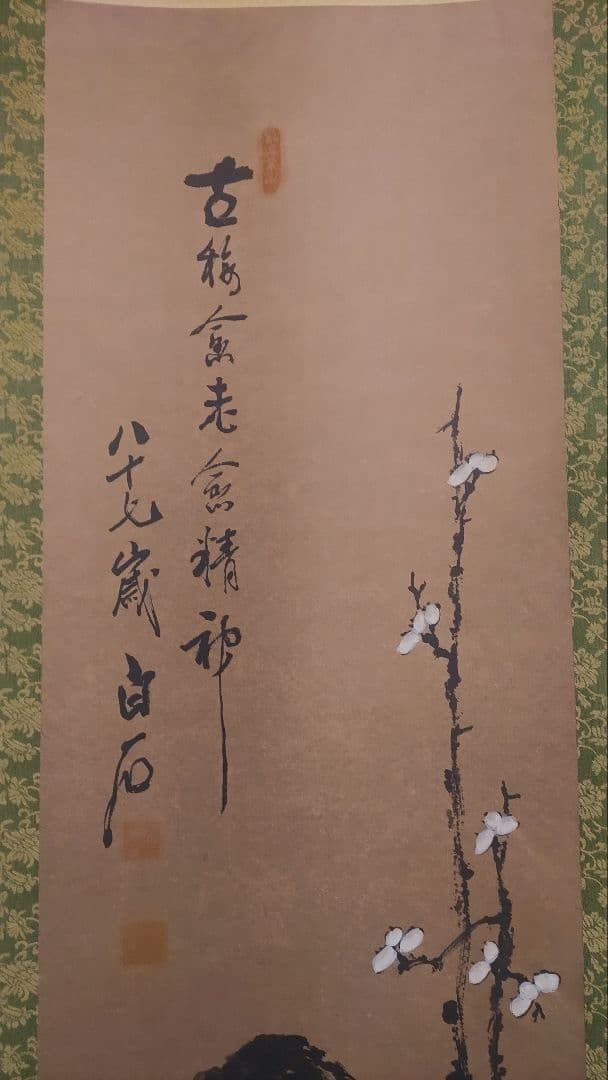 古梅愈老愈精神
八十七歳白石